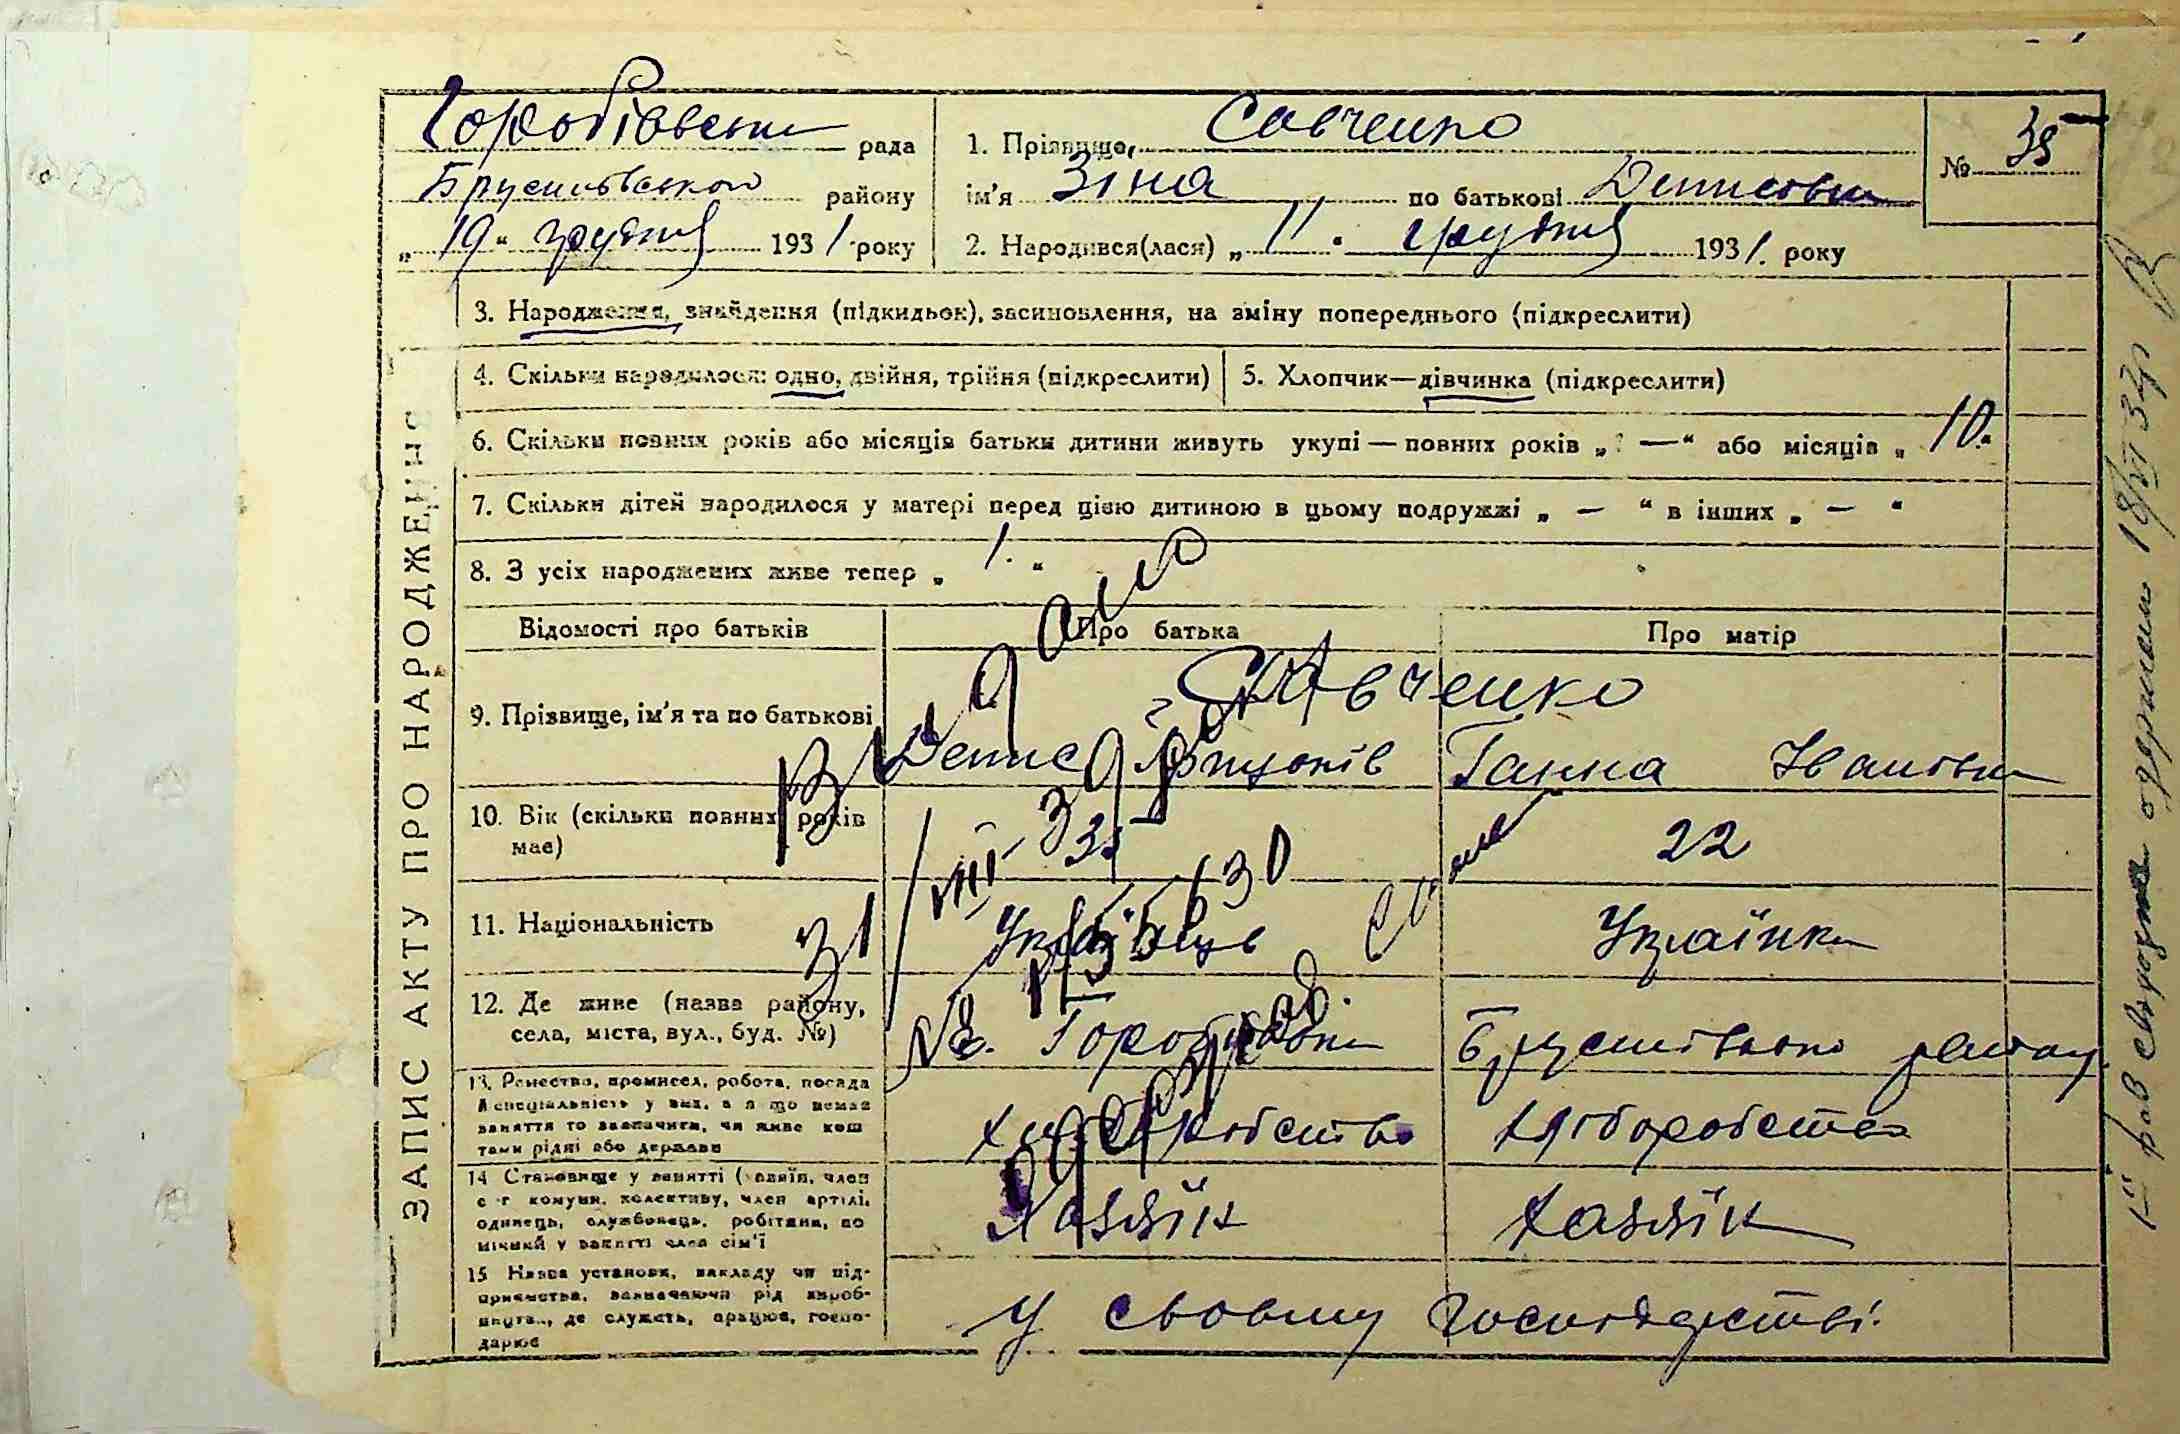 Горобіївська рада
Брусилівського району
„19“ грудня 1931 року
1. Прізвище, Савченко
ім'я Зіна по батькові Денисовна
№ 35
2. Народився(лася) „11“ грудня 1931. року
ЗАПИС АКТУ ПРО НАРОДЖЕННЯ
3. Народження, знайдення (підкидьок), засиновлення, на зміну попереднього (підкреслити)
4. Скільки народилося: одно, двійня, трійня (підкреслити)
5. Хлопчик—дівчинка (підкреслити)
6. Скільки повних років або місяців батьки дитини живуть укупі — повних років „ —“ або місяців „10.“
7. Скільки дітей народилося у матері перед цією дитиною в цьому подружжі „ — “ в інших „ — “
8. З усіх народжених живе тепер „ 1. “
Відомості про батьків
Про батька
Про матір
9. Прізвище, ім'я та по батькові
Савченко
Денис
Ганна Івановна
10. Вік (скільки повних років має)
22
11. Національність
Українець
Українка
12. Де живе (назва району,
села, міста, вул., буд. №)
Горобіівка Брусилівського району
13. Ремество, промисел, робота, посада
й спеціальність у них, а якщо немає
заняття то зазначити, чи живе кош
тами рідні або держави
Хліборобство
Хліборобство
14 Становище у занятті (хазяїн, член
с-г комуни, колективу, член артілі,
одинець, службовець, робітник, по
мічний у занятті член сім'ї
Хазяїн
Хазяїн
15 Назва установи, закладу чи під-
приємства, зазначаючи рід вироб-
ництва, де служить, працює, госпо-
дарює
У своєму господарстві.